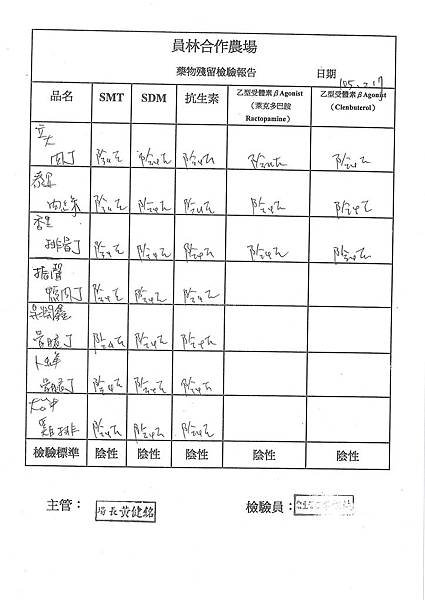 員林合作農場
藥物殘留檢驗報告 日期 105.2.17
品名 SMT SDM 抗生素 乙型受體素βAgonist (萊克多巴胺 Ractopamine) 乙型受體素βAgonist (Clenbuterol)
立大
肉丁 陰性 陰性 陰性 陰性 陰性
肉絲 陰性 陰性 陰性 陰性 陰性
排骨丁 陰性 陰性 陰性 陰性 陰性
振聲
鴨肉丁 陰性 陰性 陰性
骨腿丁 陰性 陰性 陰性
骨腿丁 陰性 陰性 陰性
雞排 陰性 陰性 陰性
檢驗標準 陰性 陰性 陰性 陰性 陰性
主管： 場長黃健銘 檢驗員：